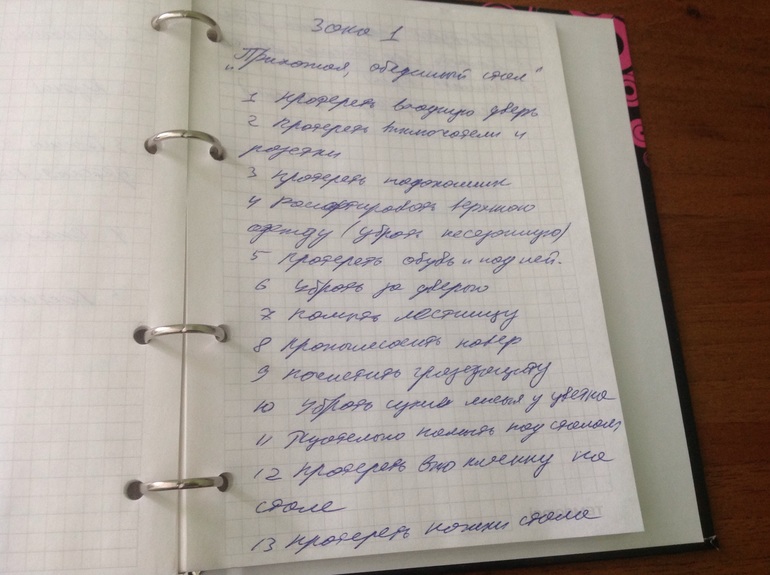 Зона 1
"Прихожая, обеденный стол"
1 Протереть входную дверь
2 Протереть выключатели и
розетки
3 Протереть подоконник
4 Рассортировать верхнюю
одежду (убрать несезонную)
5 Протереть обувь и под ней.
6 Убрать за дверью
7 Помыть лестницу
8 Пропылесосить ковер
9 Почистить грязезащиту
10 Убрать сухие листья у цветка
11 Тщательно помыть под столом,
12 Протереть клеенку на
столе
13 Протереть ножки стола